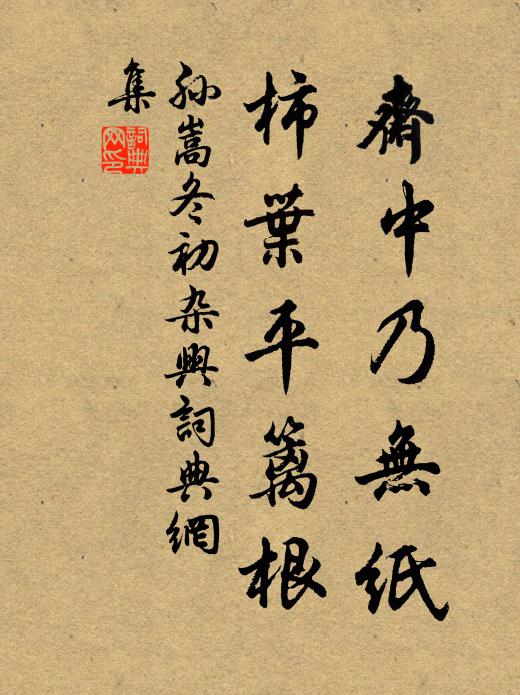 齋中乃無紙
柿葉平籬根
孙嵩冬初杂興詞典網
集
詞典
网印